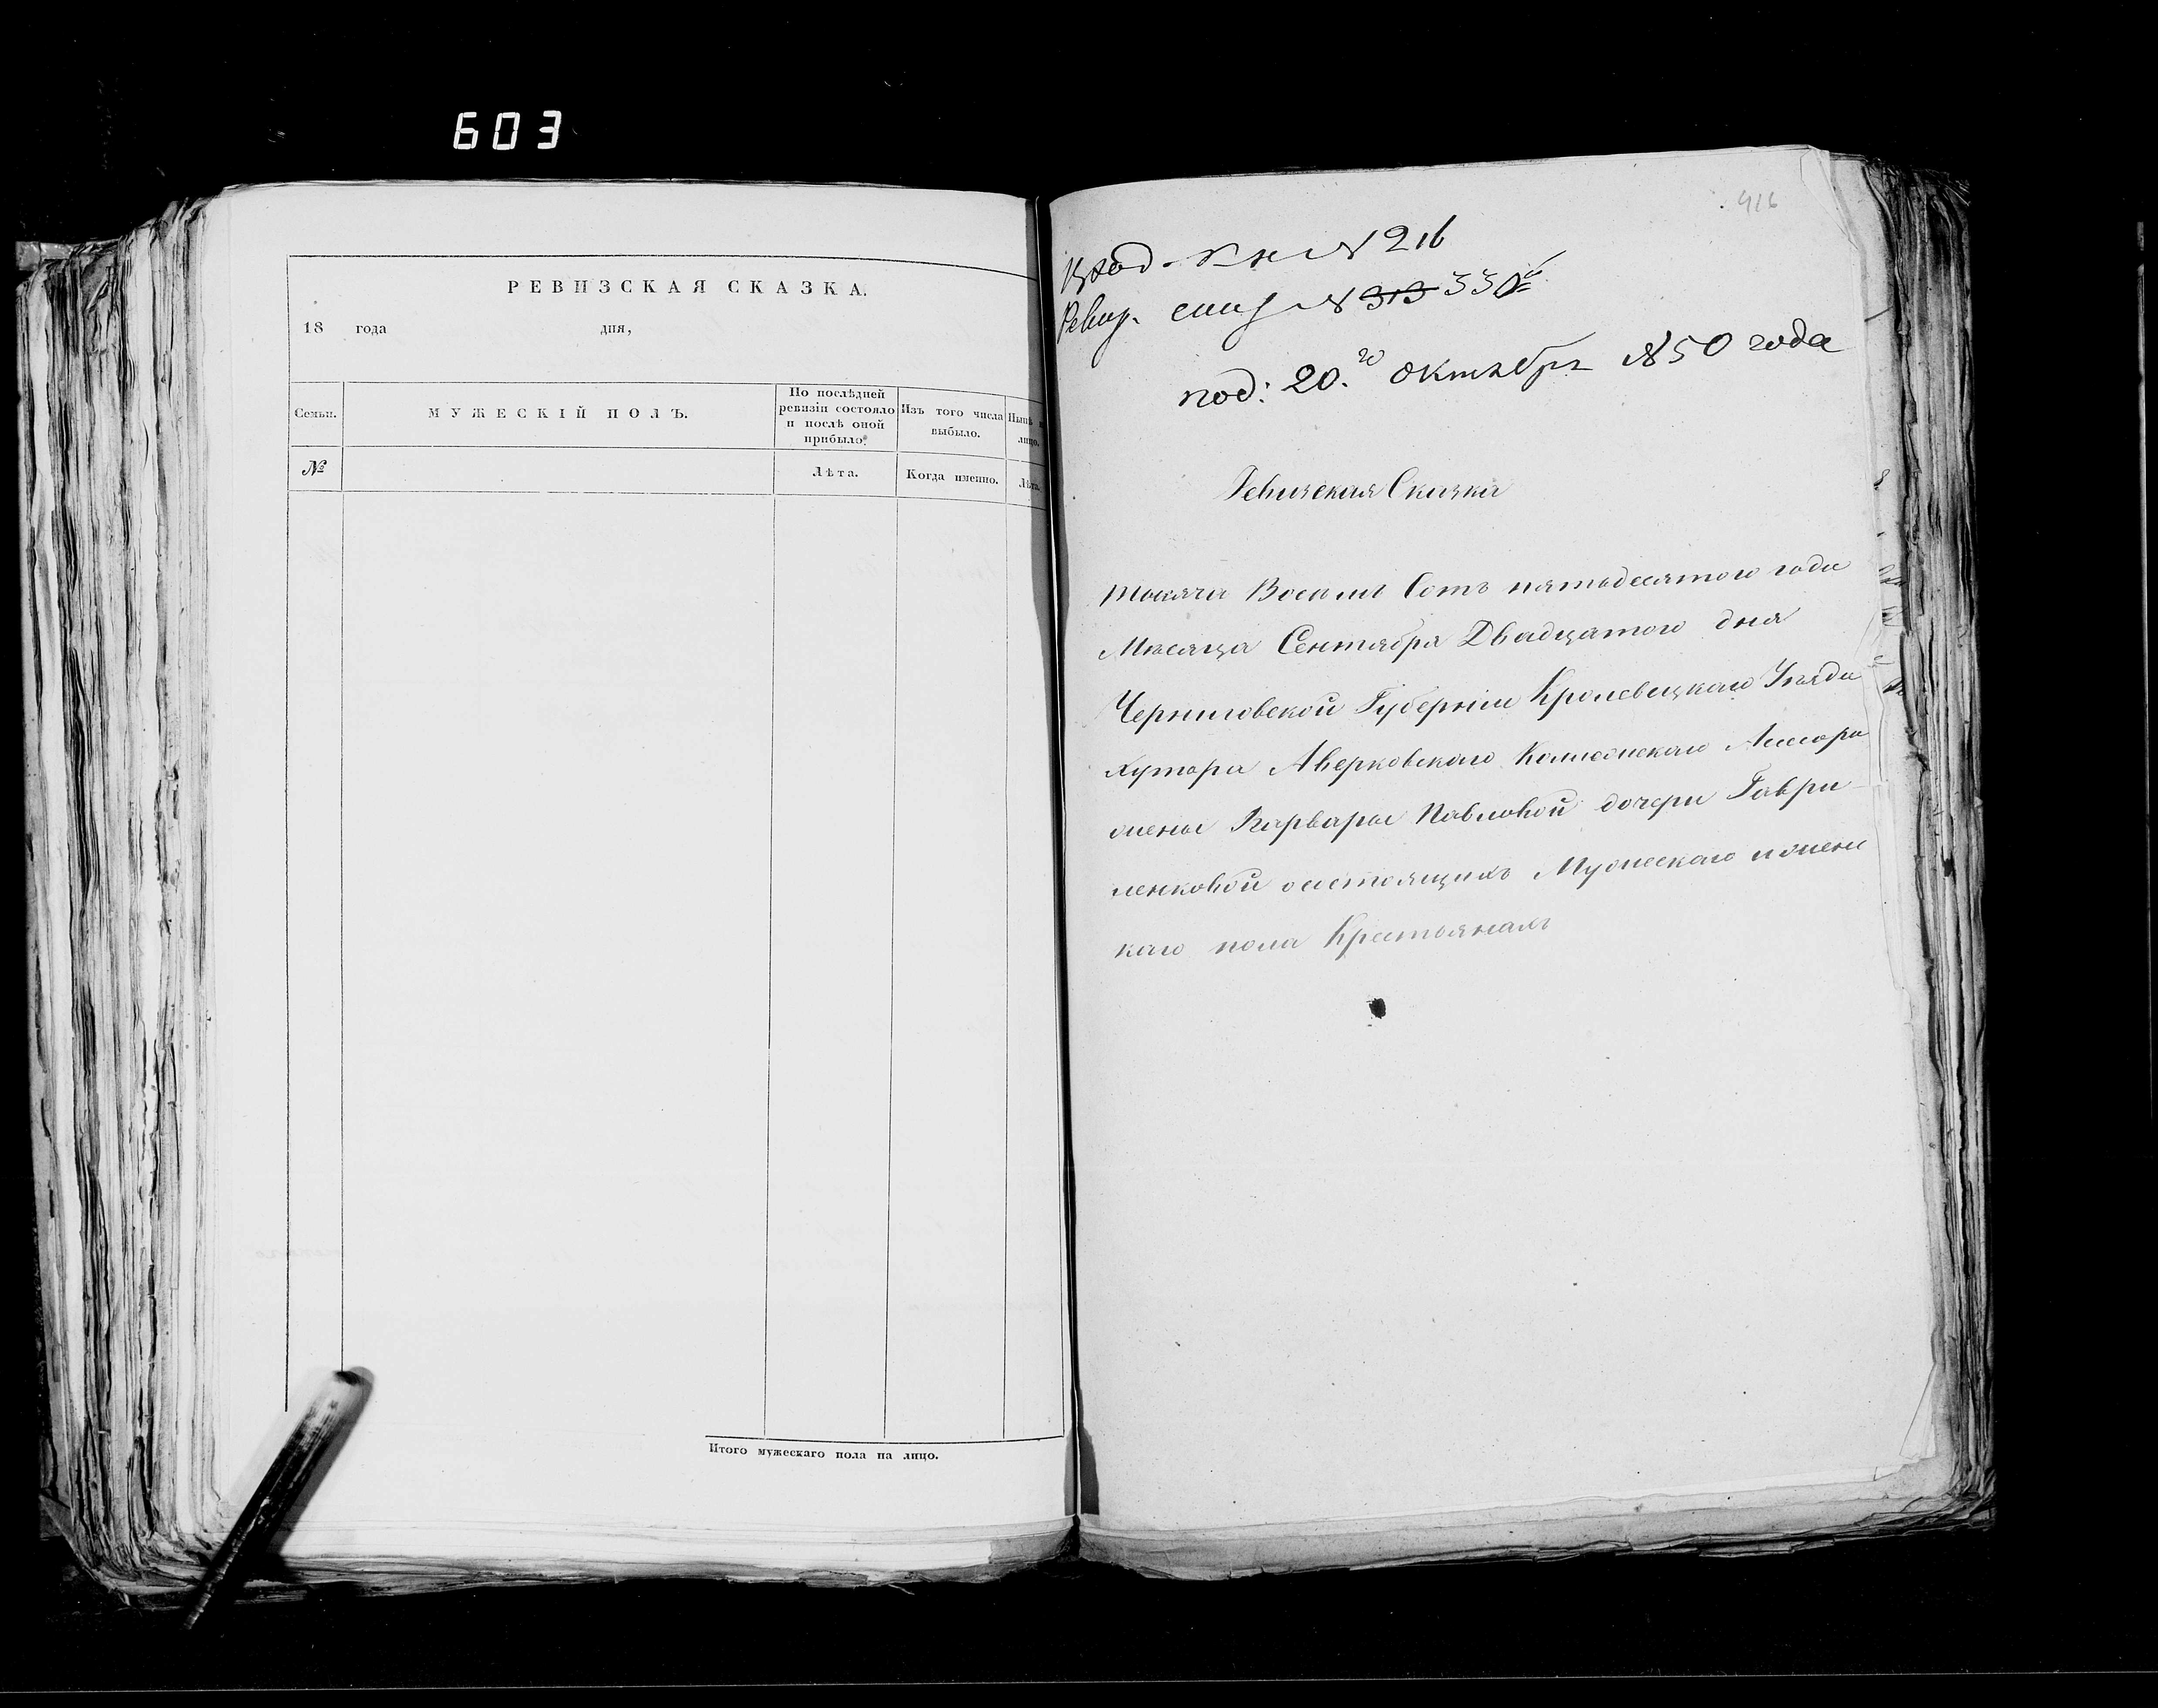 603
РЕВИЗСКАЯ СКАЗКА.
18 года дня,
Семьи.
МУЖЕСКІЙ ПОЛЪ.
По послѣдней
ревизіи состояло
и послѣ оной
прибыло.
Изъ того числа
выбыло.
Нынѣ
лицо.
№
Лѣта.
Когда именно.
Лѣта.
Итого мужескаго пола на лицо.
416
Вход. Кн № 216
Ревиз. № 313 330
под: 20.го октября 1850 года
Ревизская Сказка
тысяча Восемь Сотъ пятьдесятого года
Мѣсяца Сентября Двадцатого дня
Черниговской Губерніи Кролевецкаго Уѣзда
хутора Аверковскаго Колежскаго Ассесора
жены Варвары Павловой дочери Гаври-
ленковой состоящихъ Мужескаго и женс
каго пола Крестьянахъ